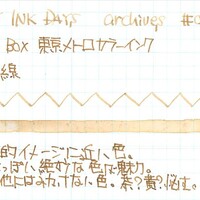 INK Days archives #0
BOX 東京メトロカラーインク
線
的イメージに近い色。
っぽい絶すな色で魅力。
他にはみかけない色。茶?黄?悩む。